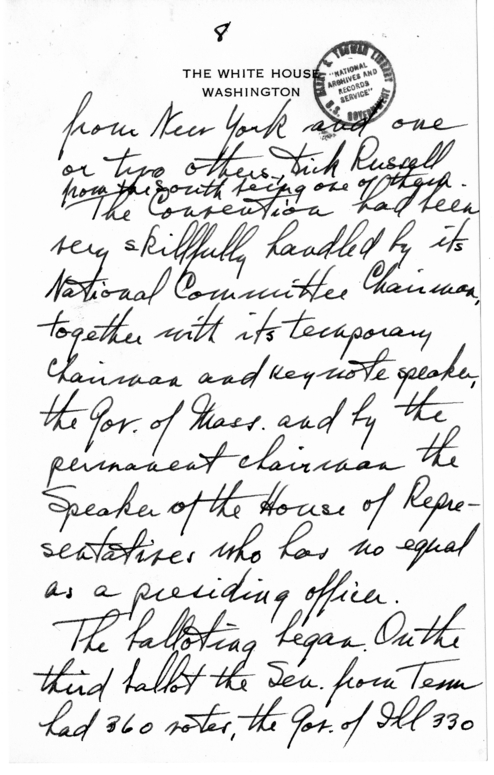 8
THE WHITE HOUSE
WASHINGTON
HARRY S. TRUMAN LIBRARY
"NATIONAL
ARCHIVES AND
RECORDS
SERVICE"
U.S. GOVERNMENT
from New York and one
or two others, Dick Russell
from the south being one of them.
The Convention had been
very skillfully handled by its
National Committee Chairman,
together with its temporary
chairman and keynote speaker,
the Gov. of Mass. and by the
permanent chairman the
Speaker of the House of Repre-
sentatives who has no equal
as a presiding officer.
The balloting began. On the
third ballot the Sen. from Tenn
had 360 votes, the Gov. of Ill 330